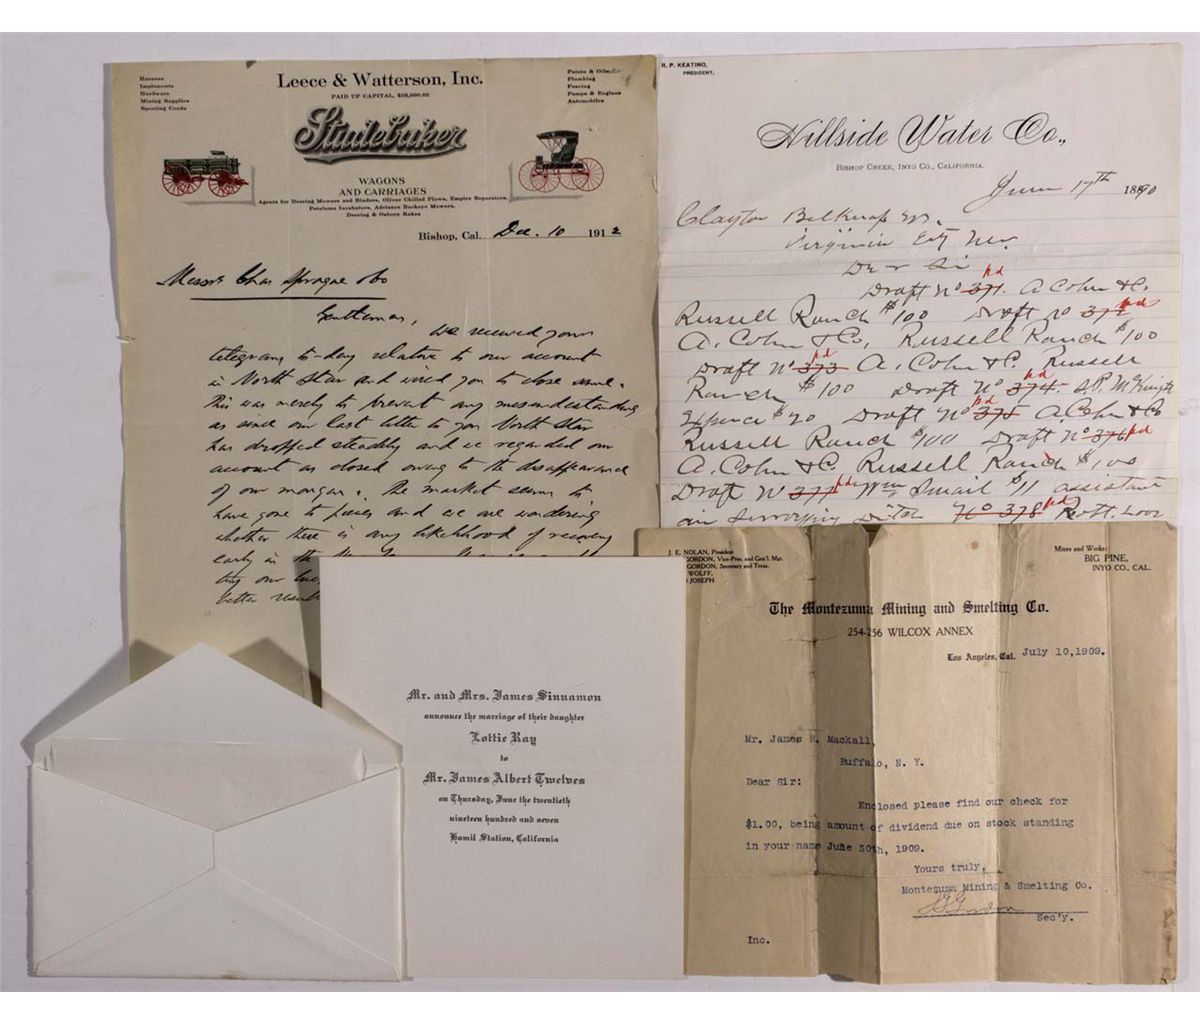 Harness
Implements
Hardware
Mining Supplies
Sporting Goods
Leece & Watterson, Inc.
PAID UP CAPITAL, $38,000.00
Paints & Oils
Plumbing
Fencing
Pumps & Engines
Automobiles
Studebaker
WAGONS
AND CARRIAGES
Agents for Deering Mowers and Binders, Oliver Chilled Plows, Empire Separators,
Petaluma Incubators, Adriance Buckeye Mowers,
Deering & Osborn Rakes
Bishop, Cal. Dec. 10 1912
Messrs Chas Sprague &Co
Gentlemen,
We received your
telegram to-day relative to our account
in North Star and wired you to close same.
This was merely to prevent any misunderstanding
as since our last letter to you North Star
has dropped steadily and we regarded our
account as closed owing to the disappearance
of our margin. The market seems to
have gone to pieces and we are wondering
whether there is any likelihood of recovery
early in the
better
R. P. KEATING,
PRESIDENT,
Hillside Water Co.,
BISHOP CREEK, INYO CO., CALIFORNIA.
June 17th 1890
Clayton Belknap Esq.
Virginia City Nev.
Dear Sir
pd
Draft No 371. A Cohn & Co.
Russell Ranch $100 Draft No 372 pd
A. Cohn & Co, Russell Ranch $100
pd
Draft No 373 A. Cohn & Co. Russell
pd
Ranch $100 Draft No 374. McKnight
pd
Expence $20 Draft No 375 A. Cohn & Co
Russell Ranch $100 Draft No 376 pd
A. Cohn & Co, Russell Ranch $100
Draft No 377 pd Wm Smail $11 assistant
in surveying Ditch No 378 pd Robt. Love
J. E. NOLAN, President
GORDON, Vice-Pres. and Gen'l. Mgr.
GORDON, Secretary and Treas.
WOLFF,
JOSEPH
Mines and Works:
BIG PINE,
INYO CO., CAL.
The Montezuma Mining and Smelting Co.
254-256 WILCOX ANNEX
Los Angeles, Cal. July 10,1909.
Mr. James R. Mackall,
Buffalo, N. Y.
Dear Sir:
Enclosed please find our check for
$1.00, being amount of dividend due on stock standing
in your name June 30th, 1909.
Yours truly,
Montezuma Mining & Smelting Co.
Gordon
Sec'y.
Inc.
Mr. and Mrs. James Sinnamon
announce the marriage of their daughter
Lottie Ray
to
Mr. James Albert Twelves
on Thursday, June the twentieth
nineteen hundred and seven
Hamil Station, California